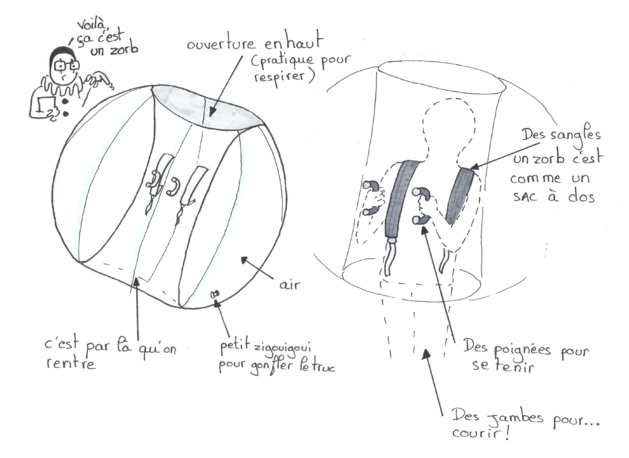 voilà,
ça c'est
un zorb
ouverture en haut
(pratique pour
respirer)
Des sangles
un zorb c'est
comme un
SAC à dos
air
c'est par là qu'on
rentre
petit zigouigoui
pour gonfler le truc
Des poignées pour
se tenir
Des jambes pour...
courir !